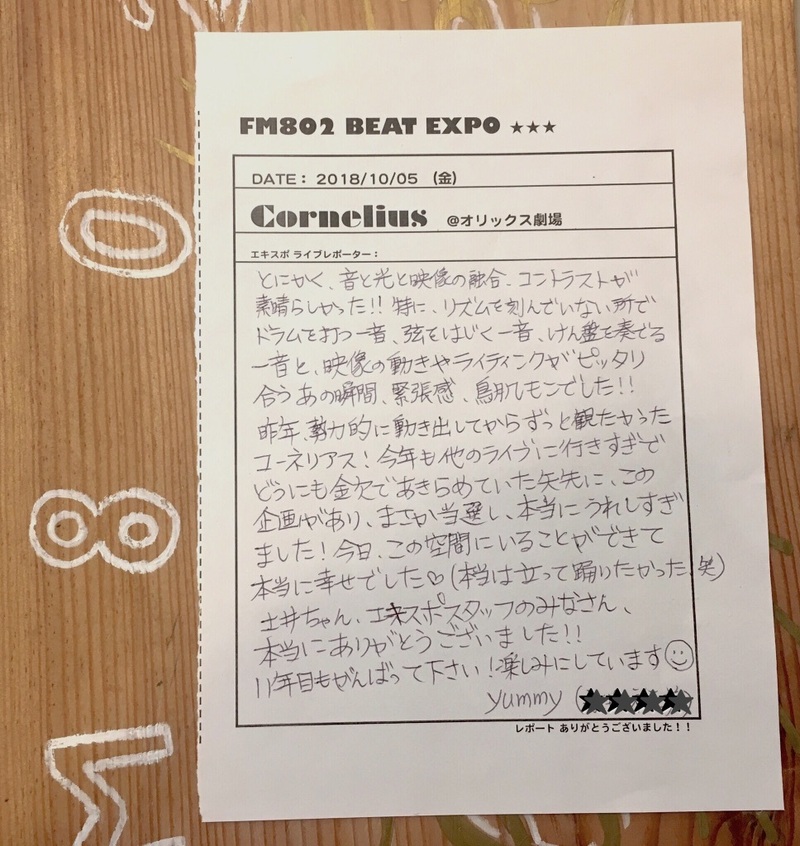 FM802 BEAT EXPO ★★★
DATE: 2018/10/05 (金)
Cornelius @オリックス劇場
エキスポ ライブレポーター:
とにかく、音と光と映像の融合、コントラストが
素晴らしかった!! 特に、リズムを刻んでいない所で
ドラムを打つ一音、弦をはじく一音、けん盤を奏でる
一音と、映像の動きやライティングがピッタリ
合うあの瞬間、緊張感、鳥肌モンでした!!
昨年、勢力的に動き出してからずっと観たかった
コーネリアス!今年も他のライヴに行きすぎで
どうにも金欠であきらめていた矢先に、この
企画があり、まさか当選し、本当にうれしすぎ
ました!今日、この空間にいることができて
本当に幸せでした♡(本当は立って踊りたかった 笑)
土井ちゃん、エキスポスタッフのみなさん、
本当にありがとうございました!!
11年目もがんばって下さい!楽しみにしています☺
yummy (★★★★)
レポート ありがとうございました!!
08